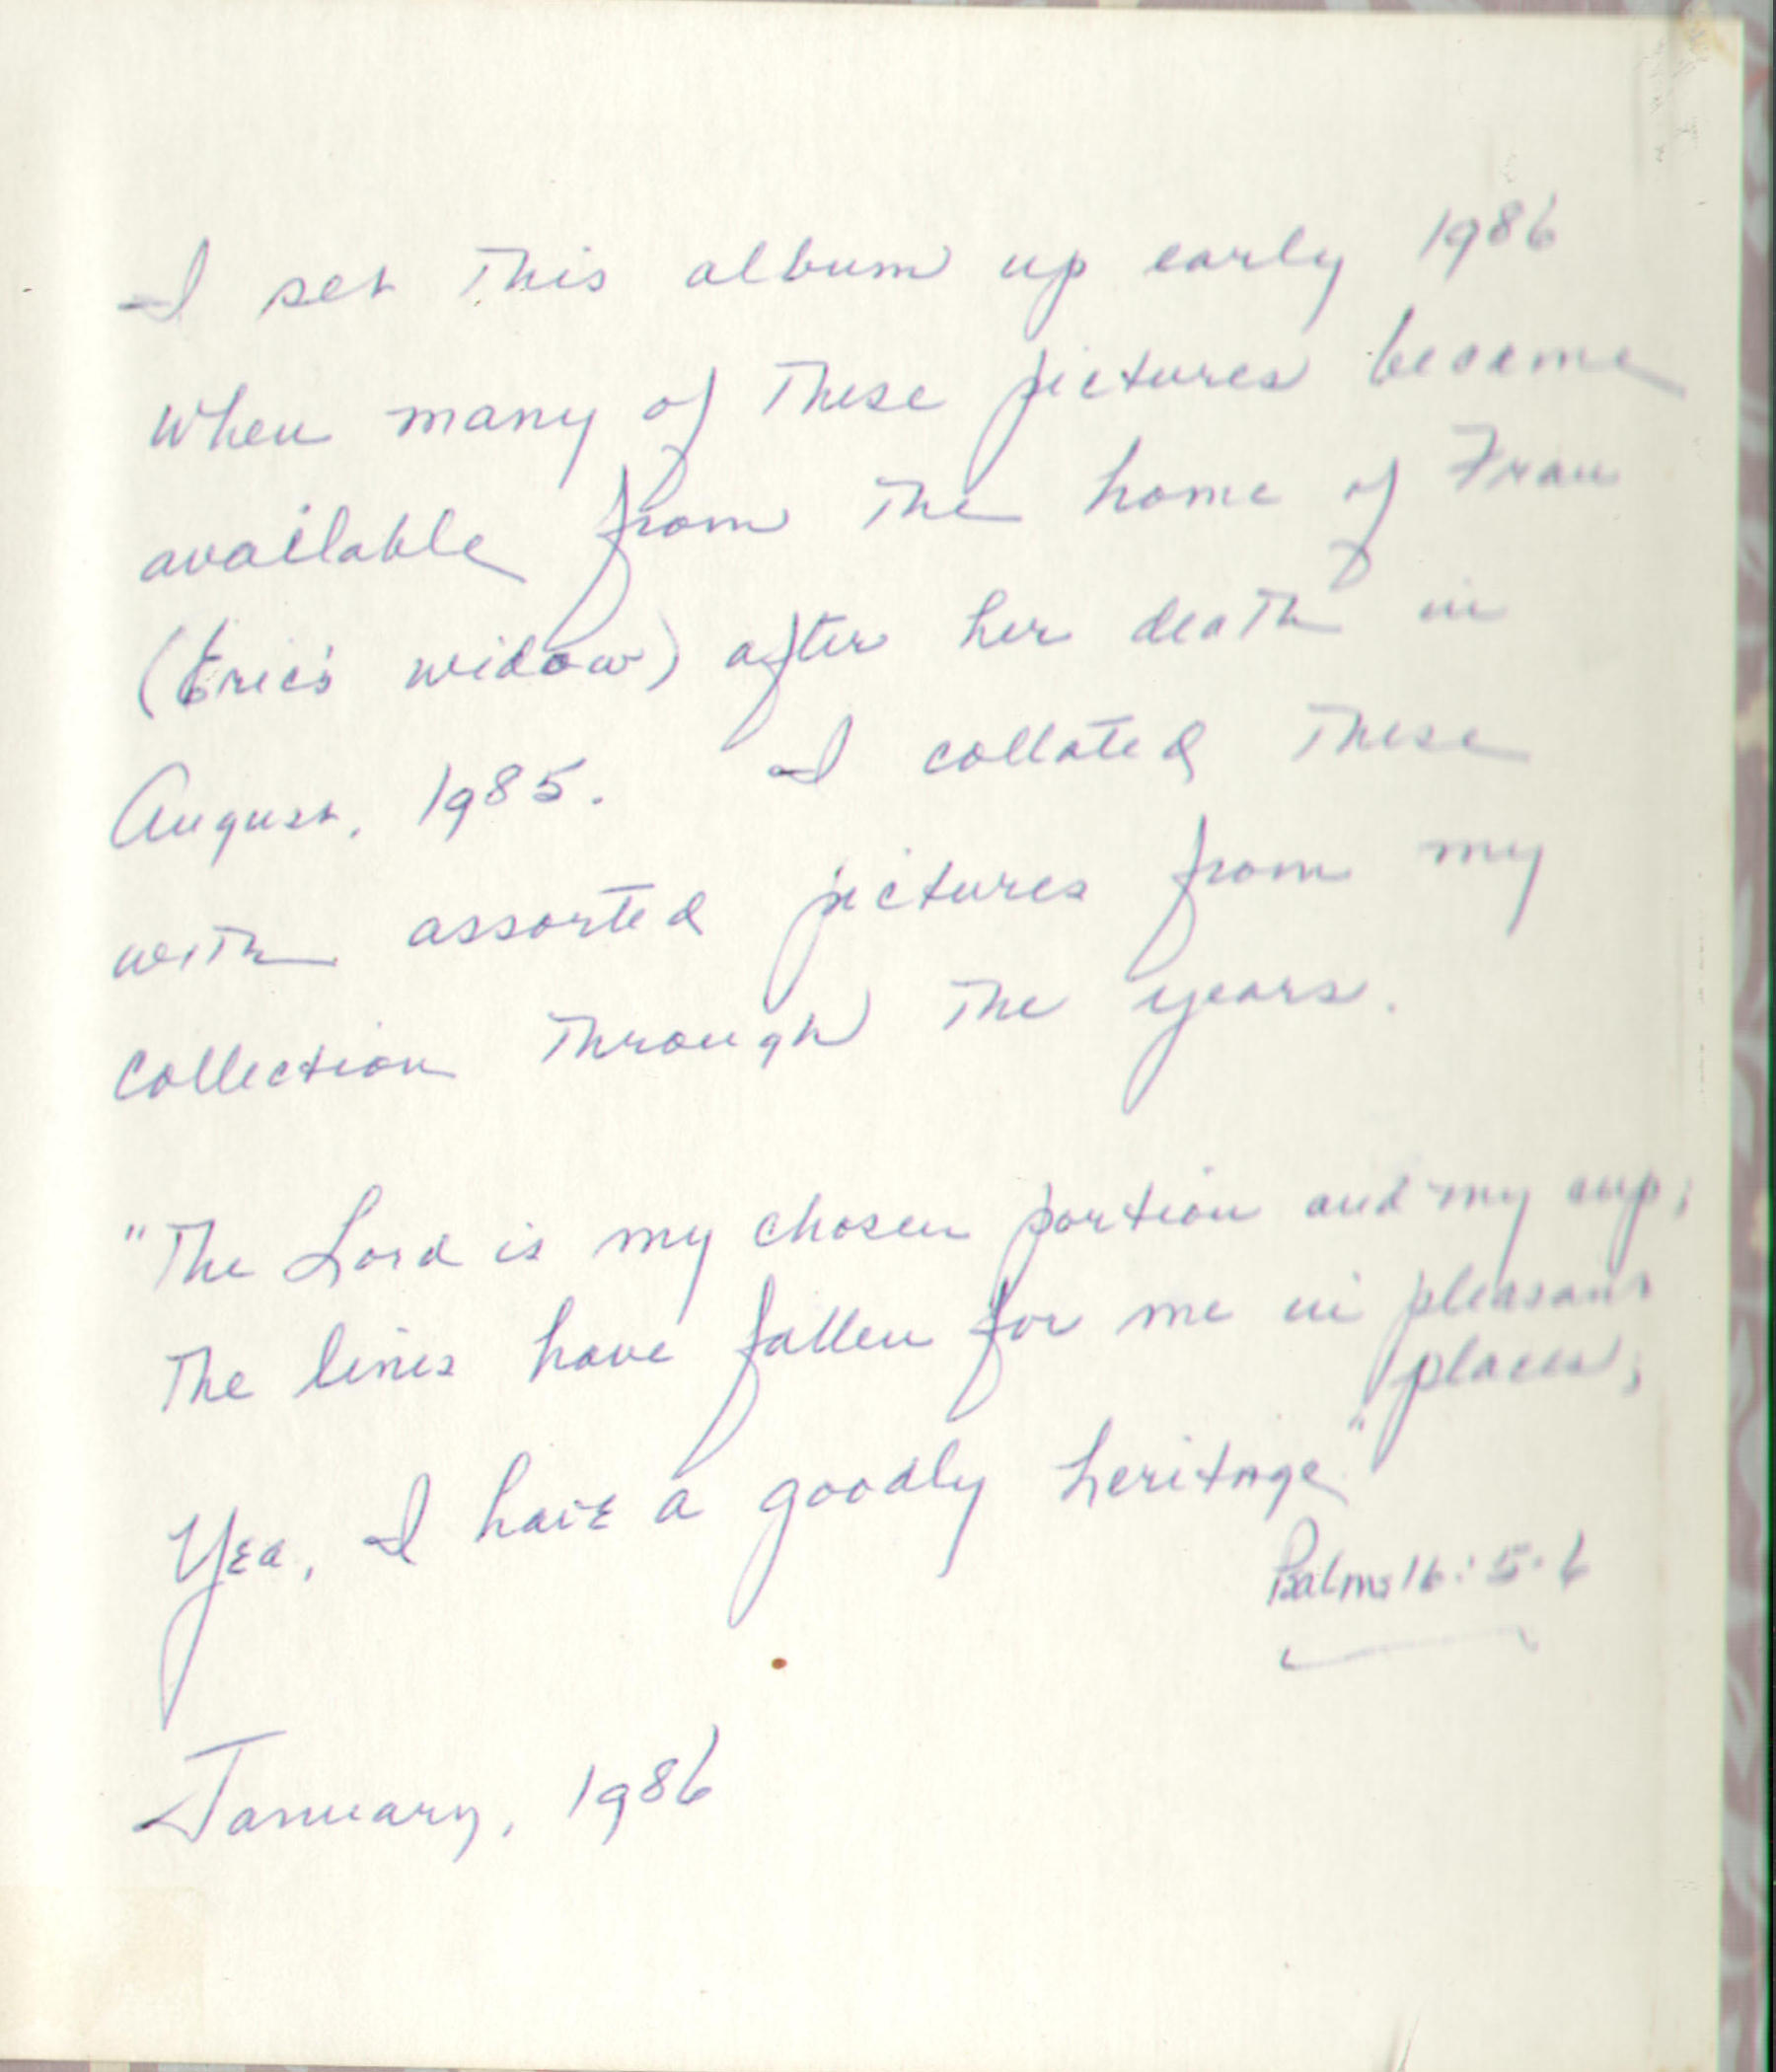 I set this album up early 1986
when many of these pictures became
available from the home of Fran
(Eric's widow) after her death in
August, 1985. I collated these
with assorted pictures from my
collection through the years.
"The Lord is my chosen portion and my cup;
The lines have fallen for me in pleasant
places;
Yea, I have a goodly heritage"
Psalms 16:5-6
January, 1986